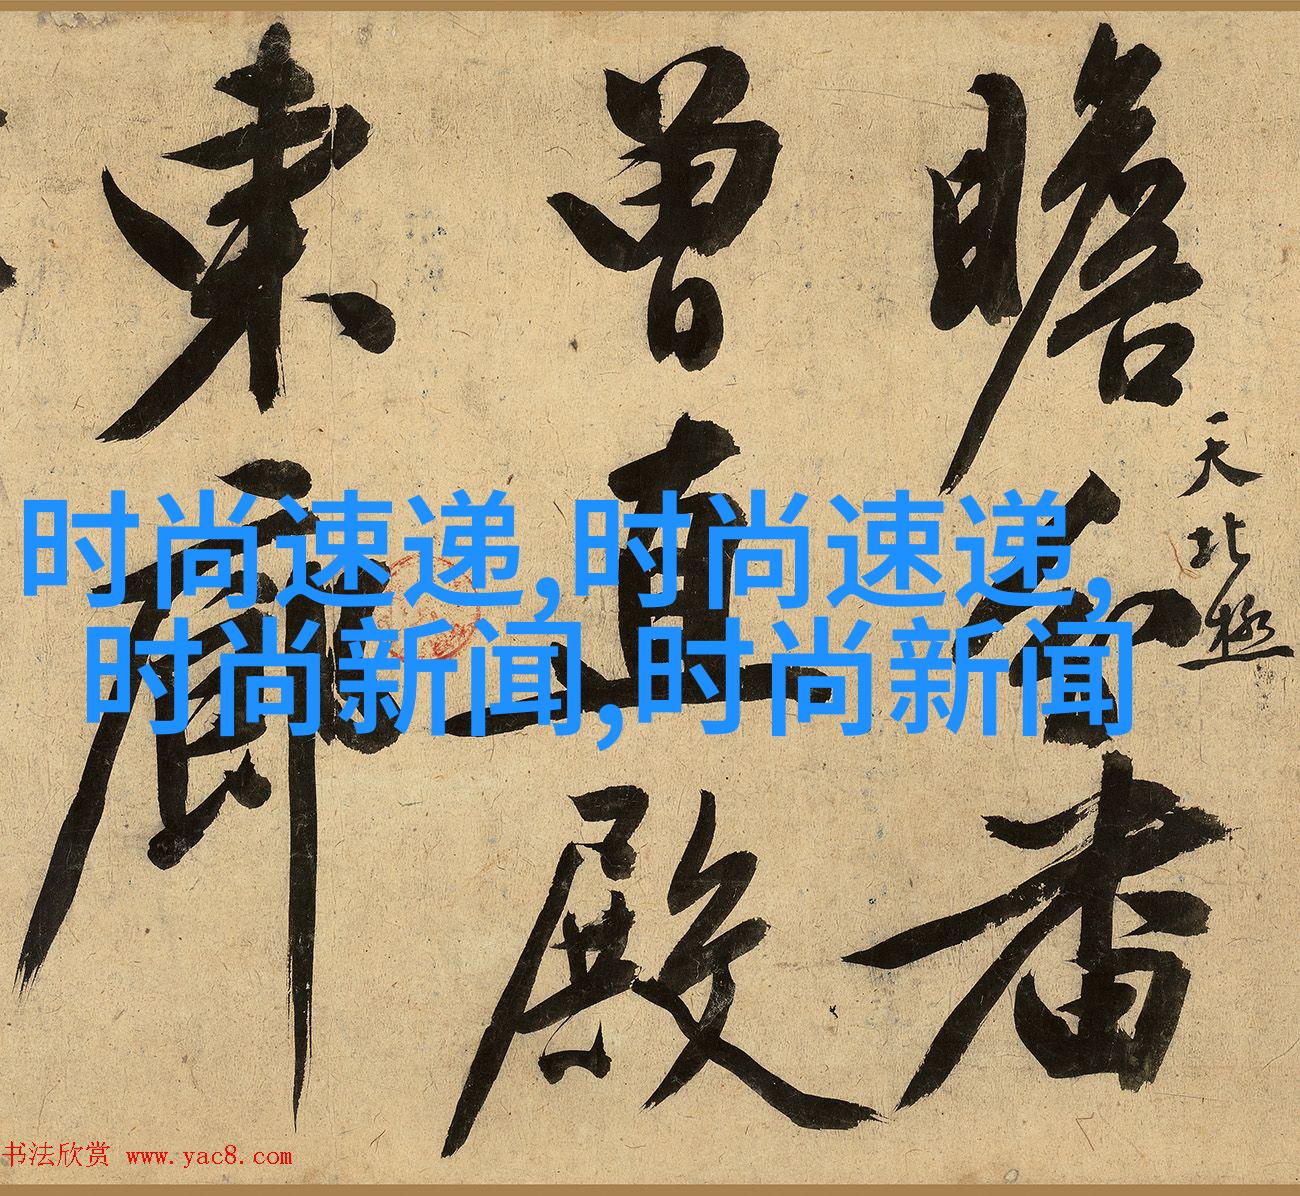 瞻
者
天北極
曾直殿
東廊
时尚速递,时尚速递,
时尚新闻,时尚新闻
书法欣赏 www.yac8.com